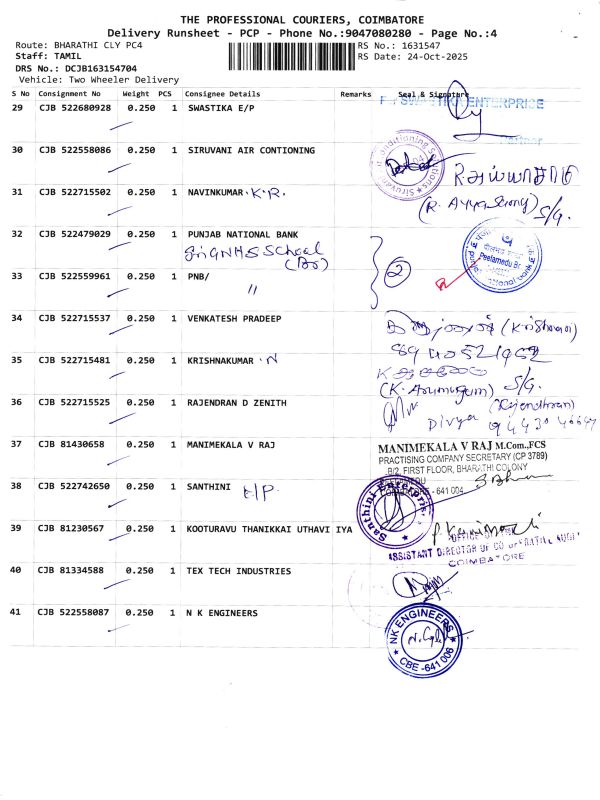 THE PROFESSIONAL COURIERS, COIMBATORE
Delivery Runsheet - PCP - Phone No.:9047080280 - Page No.:4
Route: BHARATHI CLY PC4
RS No.: 1631547
Staff: TAMIL
RS Date: 24-Oct-2025
DRS No.: DCJB163154704
Vehicle: Two Wheeler Delivery
S No Consignment No Weight PCS Consignee Details Remarks Seal & Signature
29 CJB 522680928 0.250 1 SWASTIKA E/P
SWASTIKA ENTERPRICE
30 CJB 522558086 0.250 1 SIRUVANI AIR CONTIONING
31 CJB 522715502 0.250 1 NAVINKUMAR .K.R.
S/G.
32 CJB 522479029 0.250 1 PUNJAB NATIONAL BANK
School
2
Peelamedu Br
33 CJB 522559961 0.250 1 PNB/
"
34 CJB 522715537 0.250 1 VENKATESH PRADEEP
35 CJB 522715481 0.250 1 KRISHNAKUMAR .N
(K. Arumugam) S/G.
36 CJB 522715525 0.250 1 RAJENDRAN D ZENITH
Divya (Rajendhran)
37 CJB 81430658 0.250 1 MANIMEKALA V RAJ
MANIMEKALA V RAJ M.Com.,FCS
PRACTISING COMPANY SECRETARY (CP 3789)
B/2, FIRST FLOOR, BHARATHI COLONY
- 641 004
38 CJB 522742650 0.250 1 SANTHINI E/P
Santhini Enterprises
39 CJB 81230567 0.250 1 KOOTURAVU THANIKKAI UTHAVI IYA
ASSISTANT DIRECTOR OF CO OPERATIVE AUDIT
COIMBATORE
40 CJB 81334588 0.250 1 TEX TECH INDUSTRIES
41 CJB 522558087 0.250 1 N K ENGINEERS
NK ENGINEERS
CBE -641 006